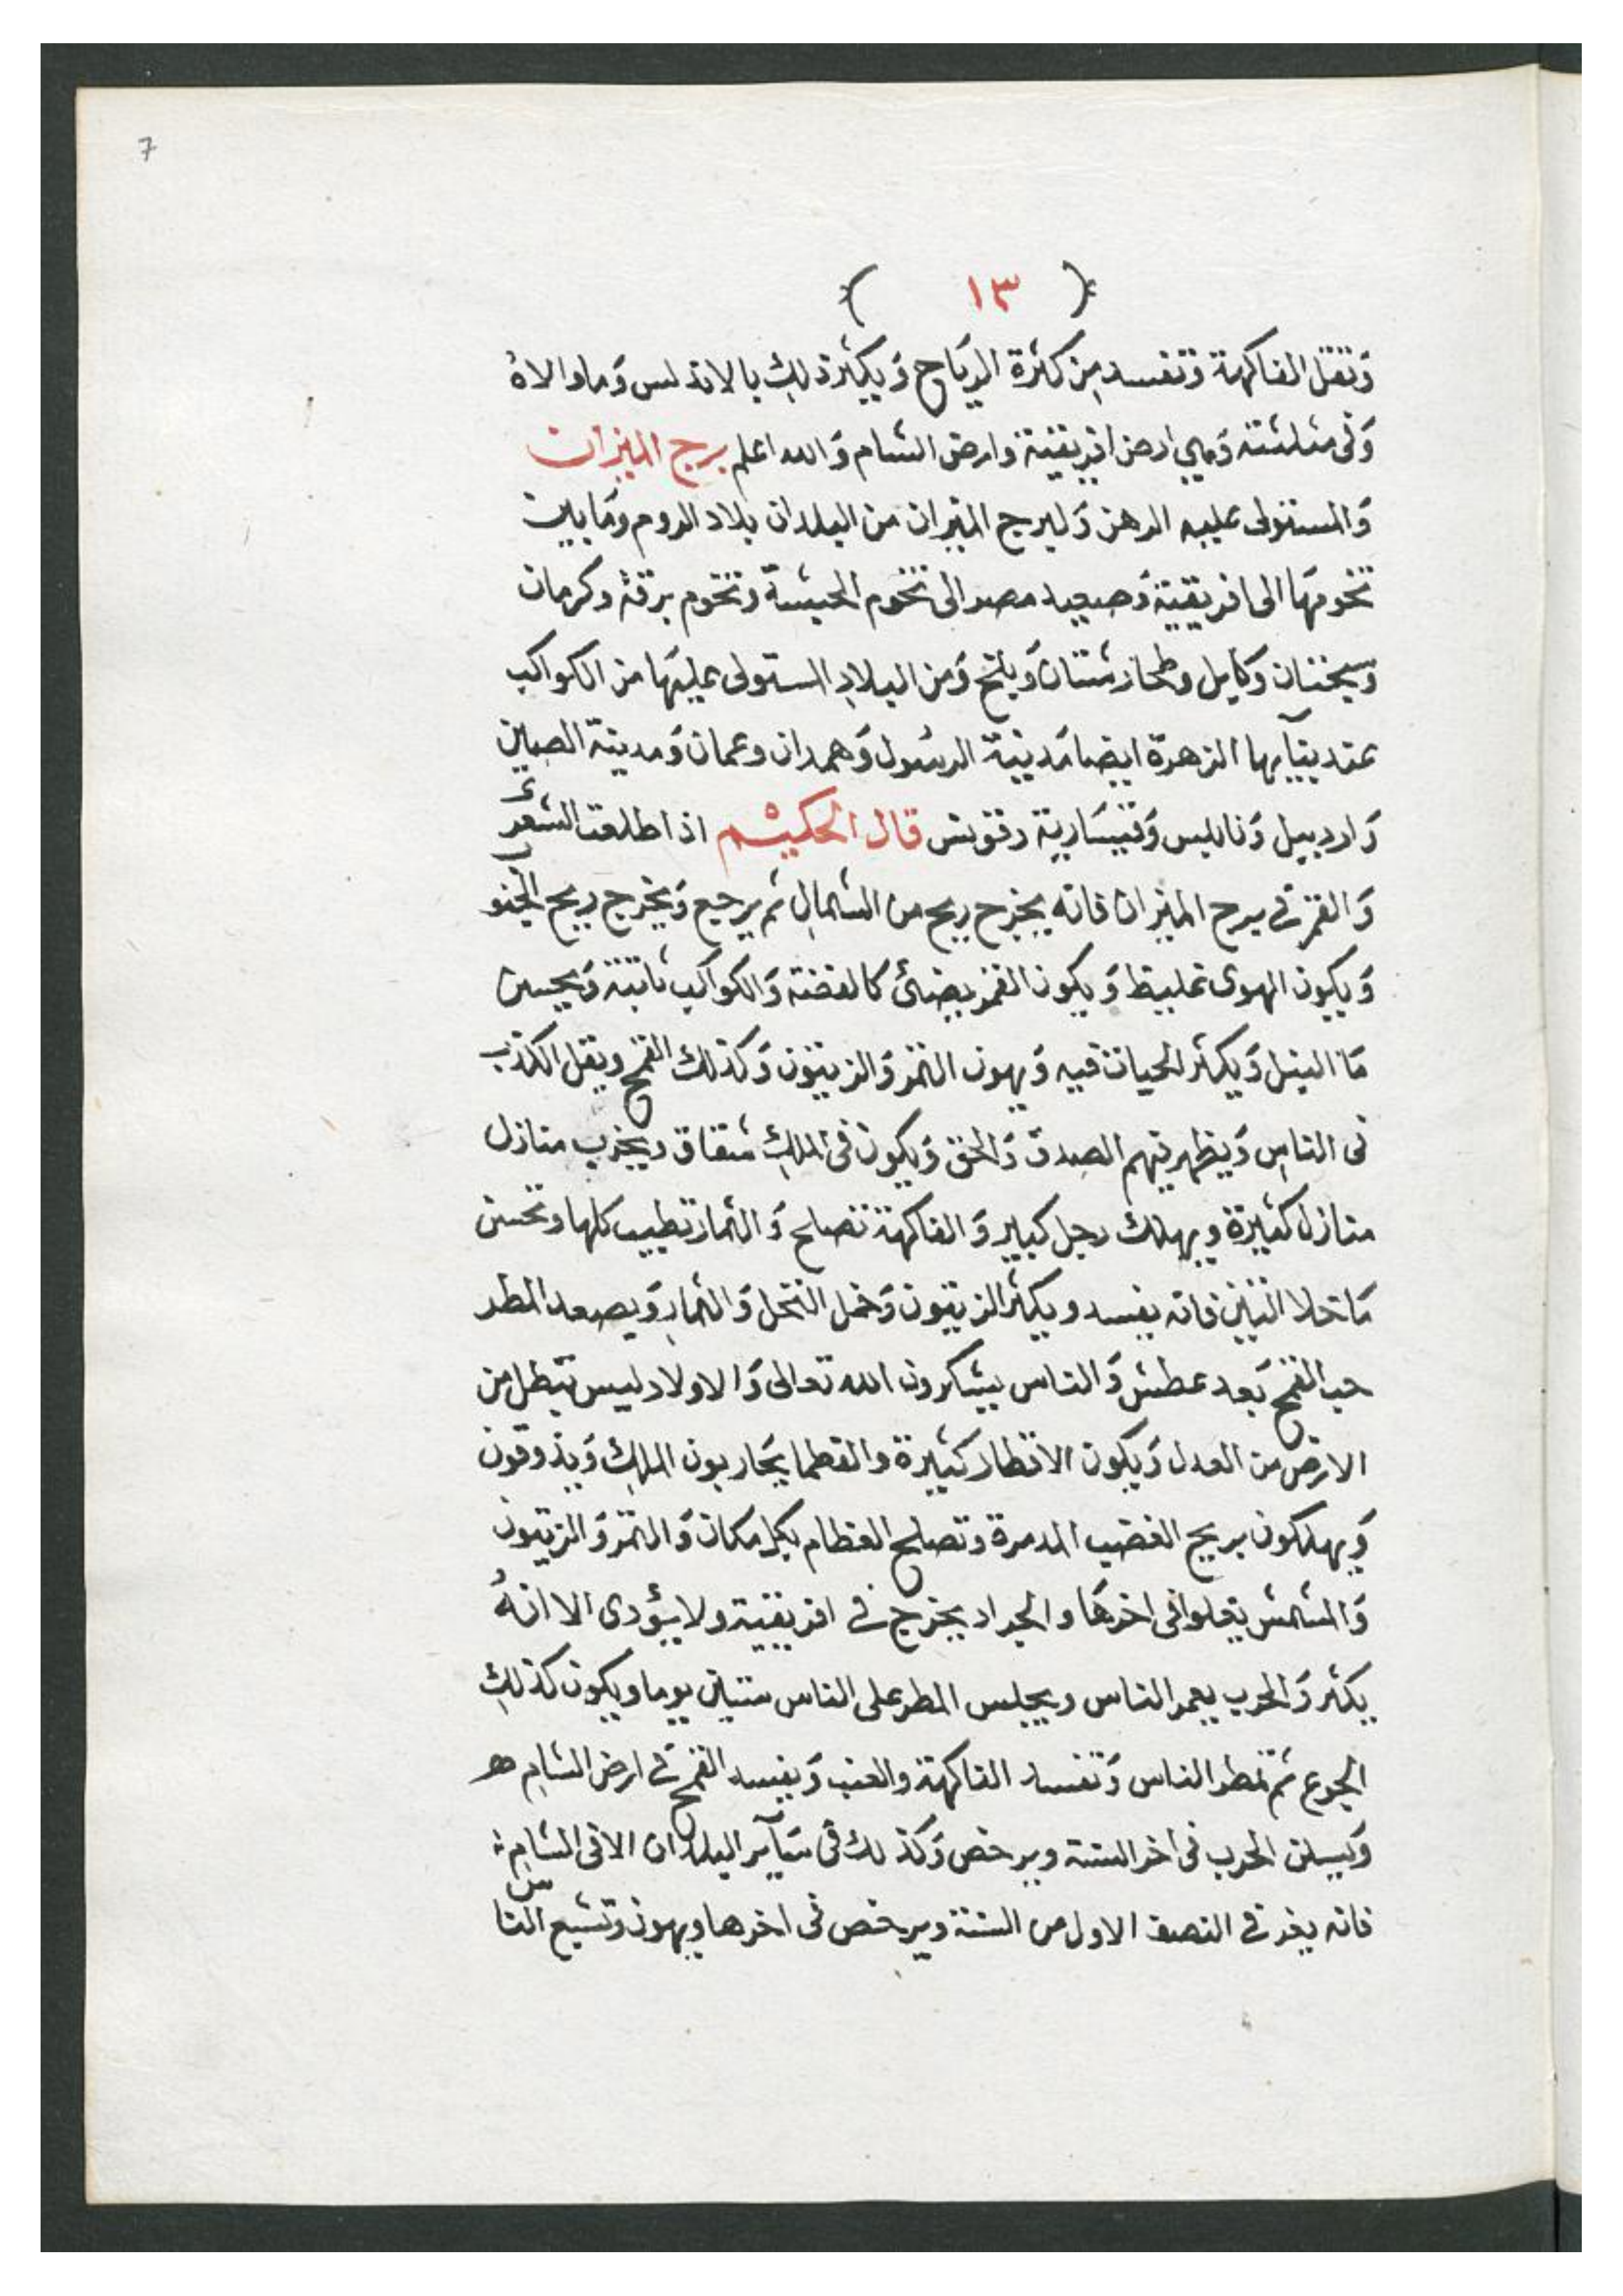 7
( ١٣ )
وَتقل الفاكهة وَتفسد مِن كثرة الريَاح وَيكثر ذلكِ بالاندلس وَما والاهُ
وَفى مثلثته وَهي ارض افريقية وارض الشام وَالله اعلم برج الميزان
وَالمستولى عليه الزهرة وَلبرج الميزان من البلدان بلاد الروم ومَا بين
تخومهَا الى افريقية وَصعيد مصر الى تخوم الحبشة وتخوم برقة وكرمان
وَسجستان وَكابل وطخارستان وَبلخ وَمن البلادِ المستولى عليهَا من الكواكب
الزهرة ايضا مَدينة الرسُول وَهمدان وعمان وَمدينة الصين
وَاردبيل وَنابلس وَقيسَارية قال الحكيم اذا طلعت الشعرَى
وَالقمر فى برج الميزان فانه يخرج ريح من الشمالِ ثم يرجع وَيخرج ريح الجنوب
وَيكون الهوى غليظ وَيكون القمر يضئ كالفضة وَالكواكب ثابتة وَيحسن
مَا النيل وَيكثر الحيات فيه وَيهون التمر وَالزيتون وَكذلك القمح ويقل الكذب
فى الناسِ وَيظهر فيهم الصدق وَالحق وَيكون فى الملكِ شقاق ويخرب منازل
منازل كثيرة ويهلك رجل كبير وَالفاكهة تصلح وَالثمار تطيب كلها وتحسن
مَا خلا التين فانه يفسد ويكثر الزيتون وَحمل النخل وَالثمارِ وَيصعد المطر
حب القمح بَعد عطش وَالناس يشكرون الله تعالى وَالاولاد ليس تبطل من
الارض من العدل وَيكون الاقطار كثيرة والعظما يحَاربون الملكِ وَيذوقون
وَيهلكون بريح الغضب المدمرة وتصلح العظام بكل مكان وَالتمر وَالزيتون
وَالمشمش يغلوا فى اخرهَا والجراد يخرج فى افريقية ولا يؤدى الا انهُ
يكثر وَالحرب يعمر الناس ويجلس المطر على الناس ستين يوما ويكون كذلكِ
الجوع ثم تمطر الناس وَتفسد الفاكهة والعنب وَيفسد القمح فى ارض الشامِ هـ
وَيسكن الحرب فى اخر السنة ويرخص وَكذلك فى سَآير البلدان الا فى الشامِ
فانه يغر فى النصف الاول من السنة ويرخص فى اخرها ويهون وَتشبع الناس